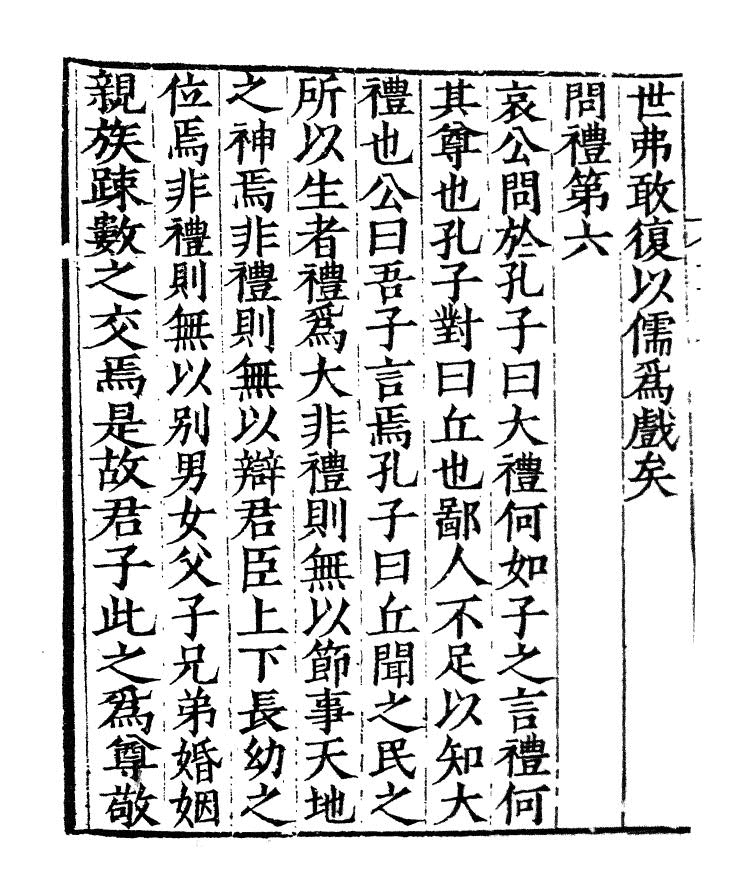 世弗敢復以儒爲戲矣
問禮第六
哀公問於孔子曰大禮何如子之言禮何
其尊也孔子對曰丘也鄙人不足以知大
禮也公曰吾子言焉孔子曰丘聞之民之
所以生者禮爲大非禮則無以節事天地
之神焉非禮則無以辯君臣上下長幼之
位焉非禮則無以别男女父子兄弟婚姻
親族踈數之交焉是故君子此之爲尊敬